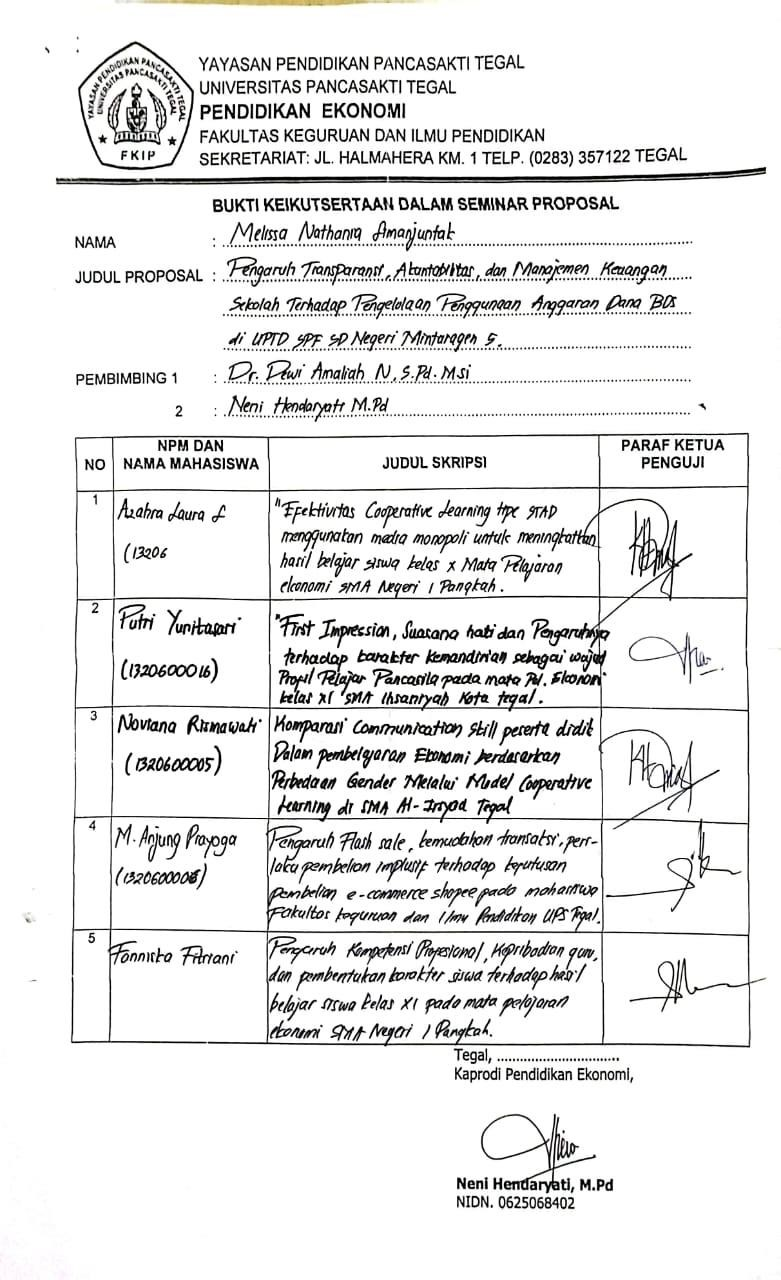 YAYASAN PENDIDIKAN PANCASAKTI TEGAL
UNIVERSITAS PANCASAKTI TEGAL
PENDIDIKAN EKONOMI
FAKULTAS KEGURUAN DAN ILMU PENDIDIKAN
SEKRETARIAT: JL. HALMAHERA KM. 1 TELP. (0283) 357122 TEGAL
YAYASAN PENDIDIKAN PANCASAKTI TEGAL
UNIVERSITAS PANCASAKTI TEGAL
FKIP
BUKTI KEIKUTSERTAAN DALAM SEMINAR PROPOSAL
NAMA : Melissa Nathania Amanjuntak
JUDUL PROPOSAL : Pengaruh Transparansi, Akuntabilitas, dan Manajemen Keuangan
Sekolah Terhadap Pengelolaan Penggunaan Anggaran Dana BOS
di UPTD SPF SD Negeri Mintaragen 5.
PEMBIMBING 1 : Dr. Dewi Amaliah N, S.Pd. Msi
2 : Neni Hendaryati M.Pd
NO NPM DAN NAMA MAHASISWA JUDUL SKRIPSI PARAF KETUA PENGUJI
1 Azahra Laura L
(13206
"Efektivitas Cooperative Learning tipe STAD
menggunakan media monopoli untuk meningkatkan
hasil belajar siswa kelas x Mata Pelajaran
ekonomi SMA Negeri 1 Pangkah.
2 Putri Yunitasari
(1320600016)
"First Impression, Suasana hati dan Pengaruhnya
terhadap karakter Kemandirian sebagai wujud
Profil Pelajar Pancasila pada mata Pel. Ekonomi
kelas XI SMA Ihsaniyah Kota tegal.
3 Noviana Rismawati
(1320600005)
Komparasi Communication skill peserta didik
Dalam pembelajaran Ekonomi berdasarkan
Perbedaan Gender Melalui Model Cooperative
Learning di SMA Al-Irsyad Tegal
4 M. Anjung Prayoga
(1320600008)
Pengaruh Flash sale, kemudahan transaksi, peri-
laku pembelian implusif terhadap keputusan
pembelian e-commerce shopee pada mahasiswa
Fakultas keguruan dan Ilmu Pendidikan UPS Tegal.
5 Fanniska Fitriani
Pengaruh Kompetensi Profesional, Kepribadian guru,
dan pembentukan karakter siswa terhadap hasil
belajar siswa kelas XI pada mata pelajaran
ekonomi SMA Negeri 1 Pangkah.
Tegal, ................................
Kaprodi Pendidikan Ekonomi,
Neni Hendaryati, M.Pd
NIDN. 0625068402